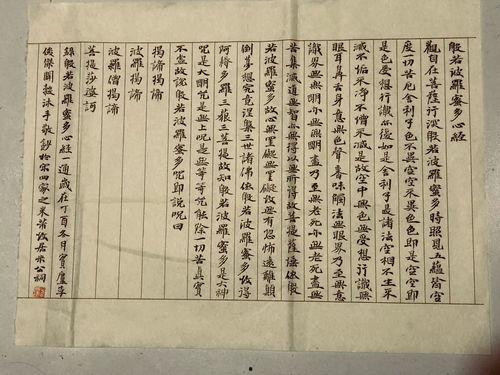 般若波羅蜜多心經
觀自在菩薩行深般若波羅蜜多時照見五蘊皆空
度一切苦厄舍利子色不異空空不異色色即是空空即
是色受想行識亦復如是舍利子是諸法空相不生不
滅不垢不淨不增不減是故空中無色無受想行識無
眼耳鼻舌身意無色聲香味觸法無眼界乃至無意
識界無無明亦無無明盡乃至無老死亦無老死盡無
苦集滅道無智亦無得以無所得故菩提薩埵依般
若波羅蜜多故心無罣礙無罣礙故無有恐怖遠離顛
倒夢想究竟涅槃三世諸佛依般若波羅蜜多故得
阿耨多羅三藐三菩提故知般若波羅蜜多是大神
咒是大明咒是無上咒是無等等咒能除一切苦真實
不虛故說般若波羅蜜多咒即說咒曰
揭諦揭諦
波羅揭諦
波羅僧揭諦
菩提莎婆訶
錄般若波羅蜜多心經一遍歲在丁酉冬月寶廬李
俊傑關毅沐手敬鈔於宋四家之米芾故居米公祠